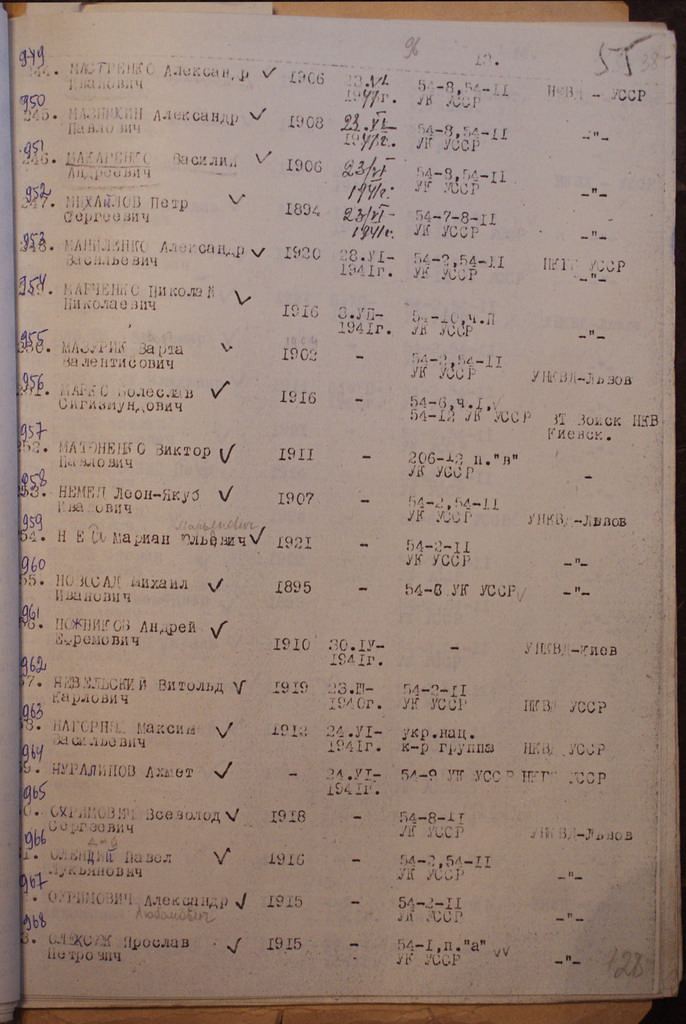 96 12. 55 38
949
МАСТРЕНКО Александр ✓ 1906 23.VI- 54-8,54-II НКВД - УССР
Иванович 1941г. УК УССР
950
245. Александр ✓ 1908 23.VI- 54-8,54-II -"-
Павлович 1941г. УК УССР
951
246. МАКАРЕНКО Василий ✓ 1906 23/VI 54-8,54-II
Андреевич 1941г. УК УССР -"-
952
247. МИХАЙЛОВ Петр ✓ 1894 23/VI- 54-7-8-II
Сергеевич 1941г. УК УССР -"-
953
248. МАНИЛЕНКО Александр ✓ 1920 28.VI- 54-2,54-II УССР
Васильевич 1941г. УК УССР -"-
954
МАРЧЕНКО Николай ✓
Николаевич 1916 3.VII- 54-10,ч.II
1941г. УК УССР -"-
955
МАЗУРИК Варта ✓ 1902 - 54-2,54-II
Валентисович УК УССР УНКВД-Львов
956
МАРКО Болеслав ✓ 1916 - 54-6,ч.I,✓
Сигизмундович 54-12 УК УССР ВТ Войск НКВД
Киевск.
957
52. МАТОНЕНКО Виктор ✓ 1911 - 206-12 п."в"
Павлович УК УССР -
958
53. НЕМЕЦ Леон-Якуб ✓ 1907 - 54-2,54-II
Иванович УК УССР УНКВД-Львов
959
Марьянович
54. Мариан Юльевич ✓ 1921 - 54-2-II
УК УССР -"-
960
55. НОВОСАД Михаил ✓ 1895 - 54-6 УК УССР ✓ -"-
Иванович
961
НОЖНИКОВ Андрей ✓
Ефремович 1910 30.IV- - УНКВД-Киев
1941г.
962
7. НЕВЕЛЬСКИЙ Витольд ✓ 1919 23.III- 54-2-II
Карлович 1940г. УК УССР НКВД УССР
963
8. Максим ✓ 1912 24.VI- укр.нац.
Васильевич 1941г. к-р группа НКВД УССР
964
9. НУРАЛИПОВ Ахмет ✓ - 24.VI- 54-9 УК УССР НКГБ УССР
1941г.
965
0. ОХРИМОВИЧ Всеволод ✓ 1918 - 54-8-II
Сергеевич УК УССР УНКВД-Львов
966
1. Павел ✓ 1916 - 54-2,54-II
Лукьянович УК УССР -"-
967
Александр ✓ 1915 - 54-2-II
УК УССР -"-
968
3. ОЛЕКСЮК Ярослав ✓ 1915 - 54-I,п."а" ✓✓ -"-
Петрович УК УССР
128